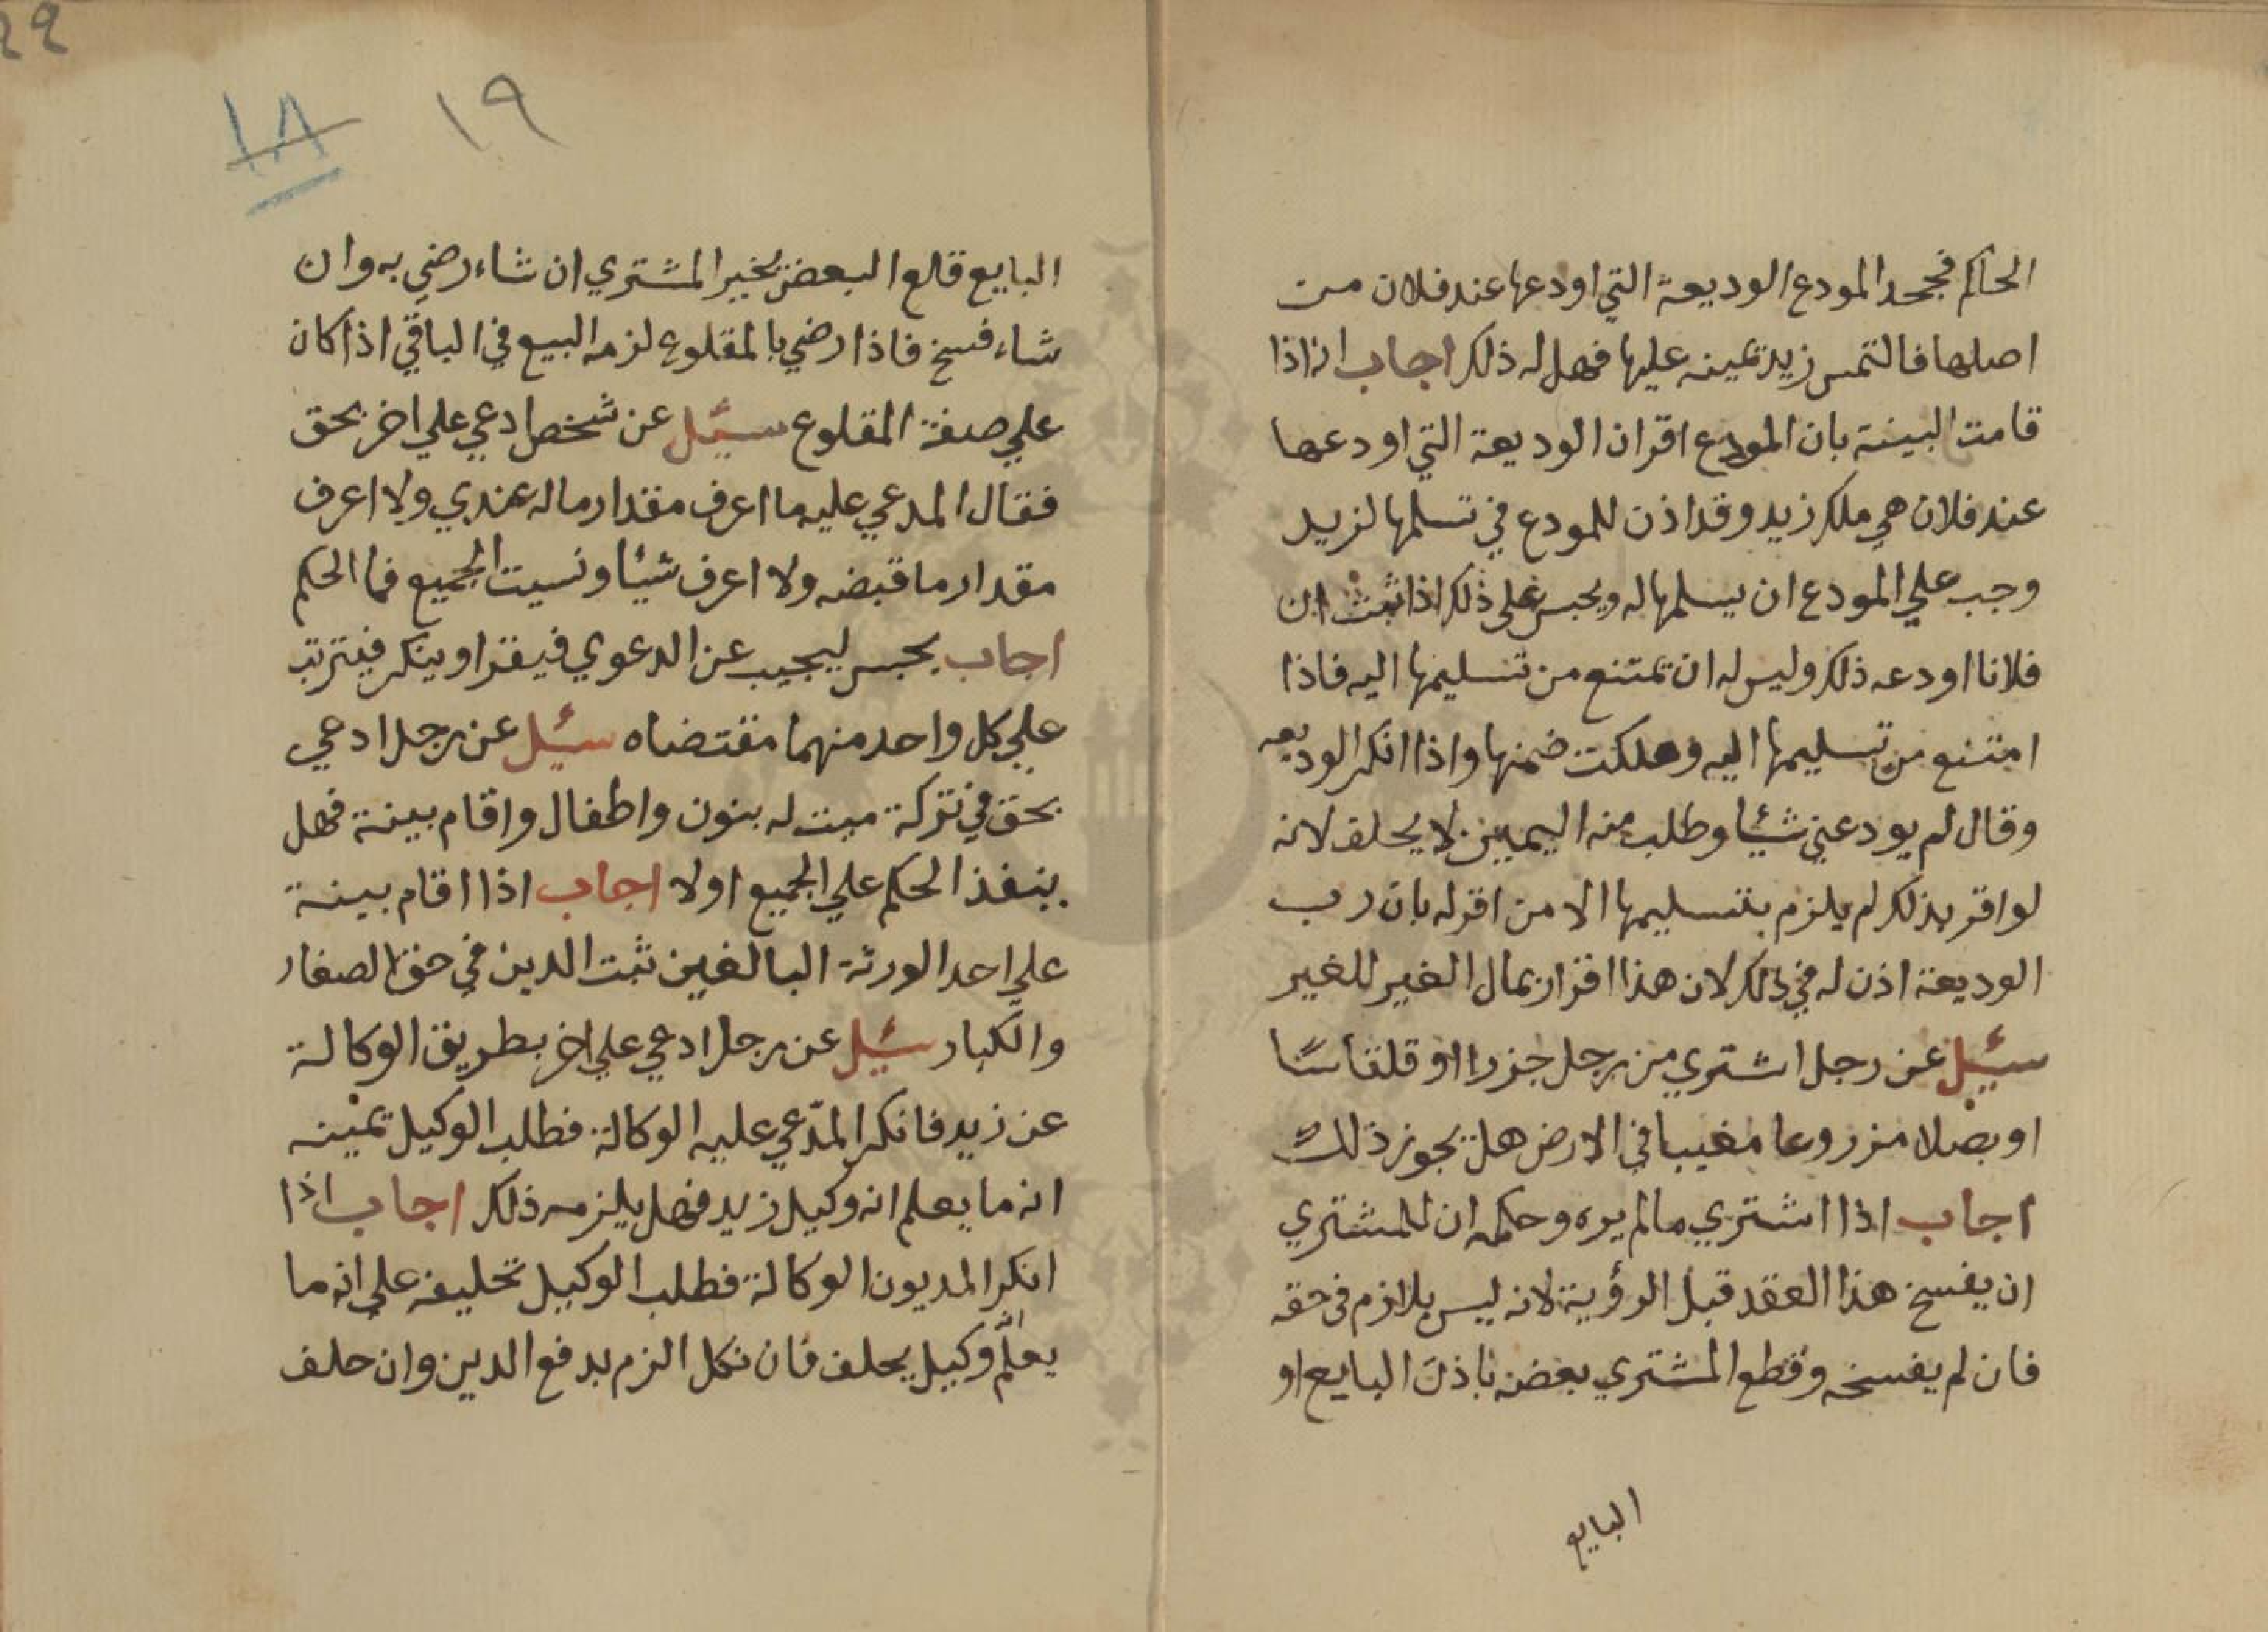 الحاكم فجحد المودع الوديعة التي اودعها عند فلان من
اصلها فالتمس زيد يمينه عليها فهل له ذلك اجاب انه اذا
قامت البينة بان المودع اقر ان الوديعة التي اودعها
عند فلان هي ملك زيد وقد اذن للمودع في تسلمها لزيد
وجب علي المودع ان يسلمها له ويحبس على ذلك اذا ثبت ان
فلانا اودعه ذلك وليس له ان يمتنع من تسليمها اليه فاذا
امتنع من تسليمها اليه وهلكت ضمنها واذا انكر الوديعه
وقال لم يودعني شيئا وطلب منه اليمين لا يحلف لانه
لو اقر بذلك لم يلزم بتسليمها الا من اقر له بان رب
الوديعة اذن له في ذلك لان هذا اقرار بمال الغير للغير
سئيل عن رجل اشتري من رجل جزرا او قلقاسا
او بصلا مزروعا مغيبا في الارض هل يجوز ذلك
اجاب اذا اشتري مالم يره وحكمه ان للمشتري
ان يفسخ هذا العقد قبل الرؤية لانه ليس بلازم في حقه
فان لم يفسخه وقطع المشتري بعضه باذن البايع او
البايع
١٩
١٨
البايع قلع البعض يخير المشتري ان شاء رضي به وان
شاء فسخ فاذا رضي بالمقلوع لزمه البيع في الباقي اذا كان
علي صفة المقلوع سئيل عن شخص ادعي علي اخر بحق
فقال المدعي عليه ما اعرف مقدار ماله عندي ولا اعرف
مقدار ما قبضه ولا اعرف شيئا ونسيت الجميع فما الحكم
اجاب يحبس ليجيب عن الدعوي فيقر او ينكر فيترتب
علي كل واحد منهما مقتضاه سئيل عن رجل ادعي
بحق في تركة ميت له بنون واطفال واقام بينة فهل
ينفذ الحكم علي الجميع اولا اجاب اذا اقام بينة
علي احد الورثة البالغين ثبت الدين في حق الصغار
والكبار سئيل عن رجل ادعي علي اخر بطريق الوكالة
عن زيد فانكر المدّعي عليه الوكالة فطلب الوكيل يمينه
انه ما يعلم انه وكيل زيد فهل يلزمه ذلك اجاب اذا
انكر المديون الوكالة فطلب الوكيل تحليفه علي انه ما
يعلم وكيل يحلف فان نكل الزم بدفع الدين وان حلف